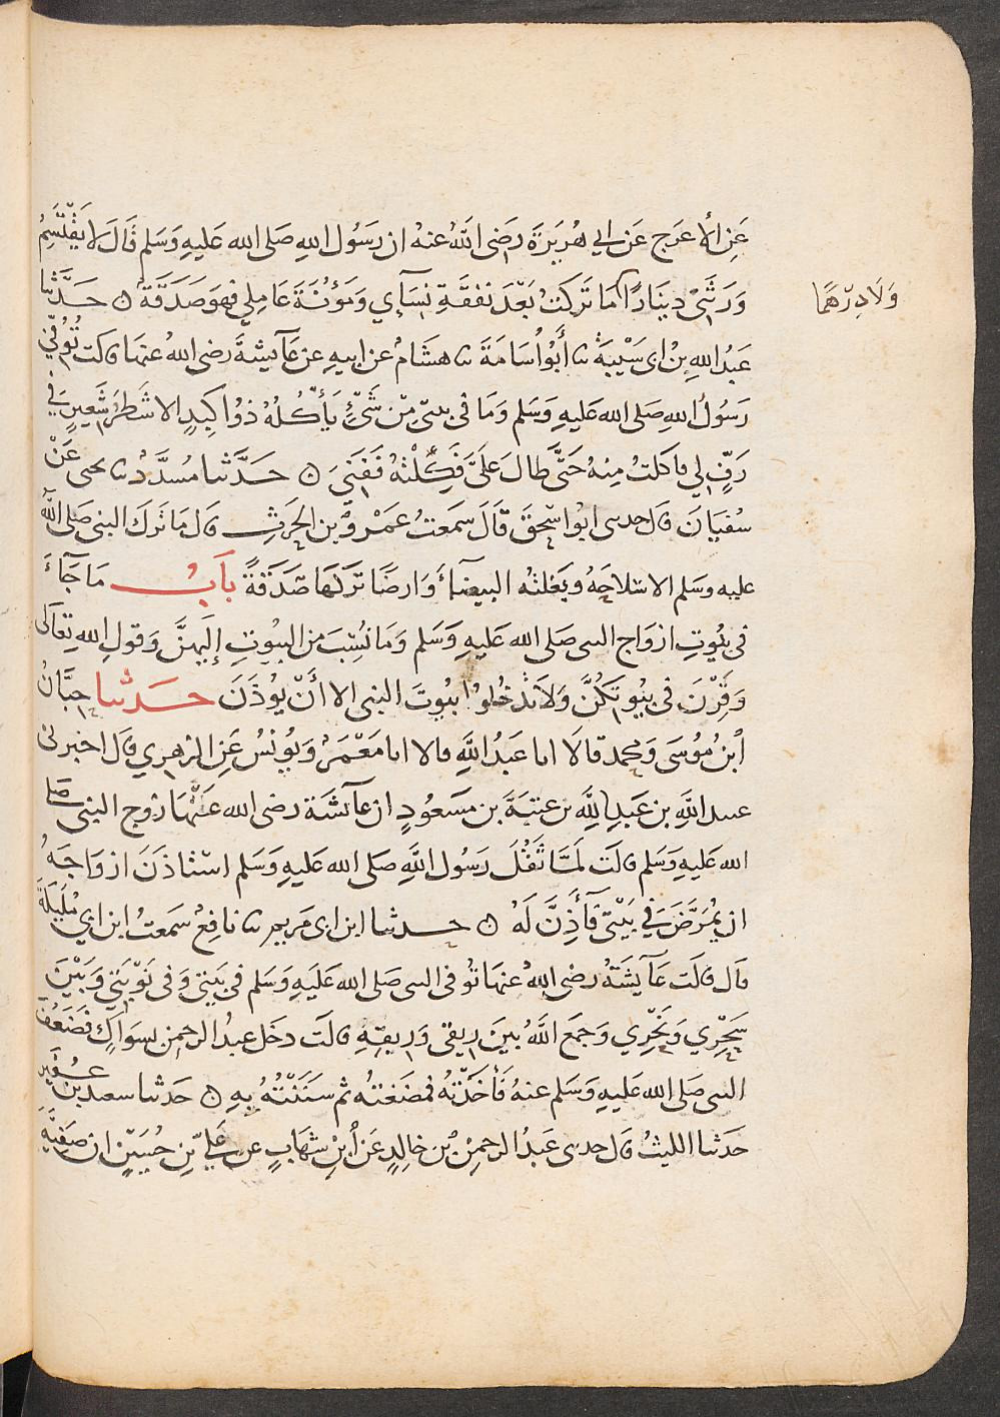 عَنِ الأَعرَج عَن ابي هُرَيرَةَ رضَى اللهُ عنهُ ان رَسُول اللهِ صَلى الله عَليهِ وَسَلم قَالَ لَا يَقْتَسِمُ
وَرَثَتِىْ دِينَارًا مَا تَركتُ بَعْدَ نفقَةِ نِسَآىِٕي وَمَؤُنَةَ عَامِلي فهوَ صَدَقَةٌ ۞ حَدَّثنا
وَلَا دِرْهَمًا
عَبدُ اللهِ بنُ ابى شَيْبَةَ ثنا أَبُوْ اُسَامَةَ ثنا هشَامٌ عن ابيهِ عن عَآيشةَ رضى اللهُ عنهَا قالت تُوُفّيَ
رَسُولُ اللهِ صَلى الله عَليهِ وَسَلم وَمَا فى بيتى مِنْ شَىْءٍ يَأْكُلُهُ ذُوْ كَبِدٍ الا شَطرُ شَعِيرٍ فِي
رَفٍّ لي فاكلتُ مِنهُ حَتَّى طالَ عَلَىَّ فَكِلْتهُ فَفَنِيَ ۞ حَدَّثنا مُسدَّدٌ ثنا يحيى عَنْ
سُفيَانَ قال حدثنى ابوْ اسْحٰقَ قَالَ سَمعتُ عَمْرَو بن الحٰرثِ قال مَا تَركَ النبى صَلى اللهُ
عليه وسَلم الا سلاحَهُ وبَغلتهُ البيضَآءَ وَارضًا تركهَا صَدَقةً بَابُ مَا جَآءَ
فى بيُوتِ ازوَاج النبى صَلى الله عَليهِ وَسَلم وَمَا نُسِبَ منَ البيُوتِ إِليهِنَّ وَقولِ الله تعَالى
وَقَرْنَ فى بيُوتِكُنَّ وَلَا تَدْخُلوْا بيُوتَ النبى الا أَنْ يُوْذَنَ حَدثنا حِبَّانُ
ابنُ مُوْسَى وَمحمد قَالَا انا عَبدُ اللهِ قالا انا مَعْمَرٌ وَيُونسُ عَنِ الزهري قال اخبرنى
عبيد اللهِ بن عَبدِ اللهِ بن عتبَةَ بن مَسعُودٍ ان عَآئشَة رضى الله عَنْهَا زوج النبى صَلى
الله عَليهِ وَسَلم قالَت لَمَّا ثَقُلَ رَسُول اللهِ صَلى الله عَليهِ وَسَلم اسْتاذَنَ ازوَاجَهُ
ان يُمرَّضَ فِي بَيْتِى فَأَذِنَّ لَهُ ۞ حدثنا ابن ابى مَريم ثنا نافِعٌ سَمعتُ ابن ابي مُلَيكَةَ
قال قالَت عَآيشَةُ رضى اللهُ عنهَا تُوفى النبى صَلى الله عَليَهِ وَسَلم فى بَيتِي وَفى نَوْبَتِي وَبَيْنَ
سَحْرِي وَنَحْرِي وَجمَع اللهُ بينَ رِيقى وَرِيقهِ قالَت دخَل عبدُ الرحمن بسِوَاكٍ فضَعُفَ
النبى صَلى الله عَليهِ وَسَلم عنهُ فَأَخذْتهُ فمضَغتهُ ثم سنَنْتُهُ بهِ ۞ حَدثنا سعيد بن عُفَيرٍ
حَدثنا الليثُ قال حدثنى عَبدُ الرحمنِ بن خالِدٍ عَن ابنِ شهَابٍ عن عَليِّ بن حُسَينٍ ان صَفيَّةَ